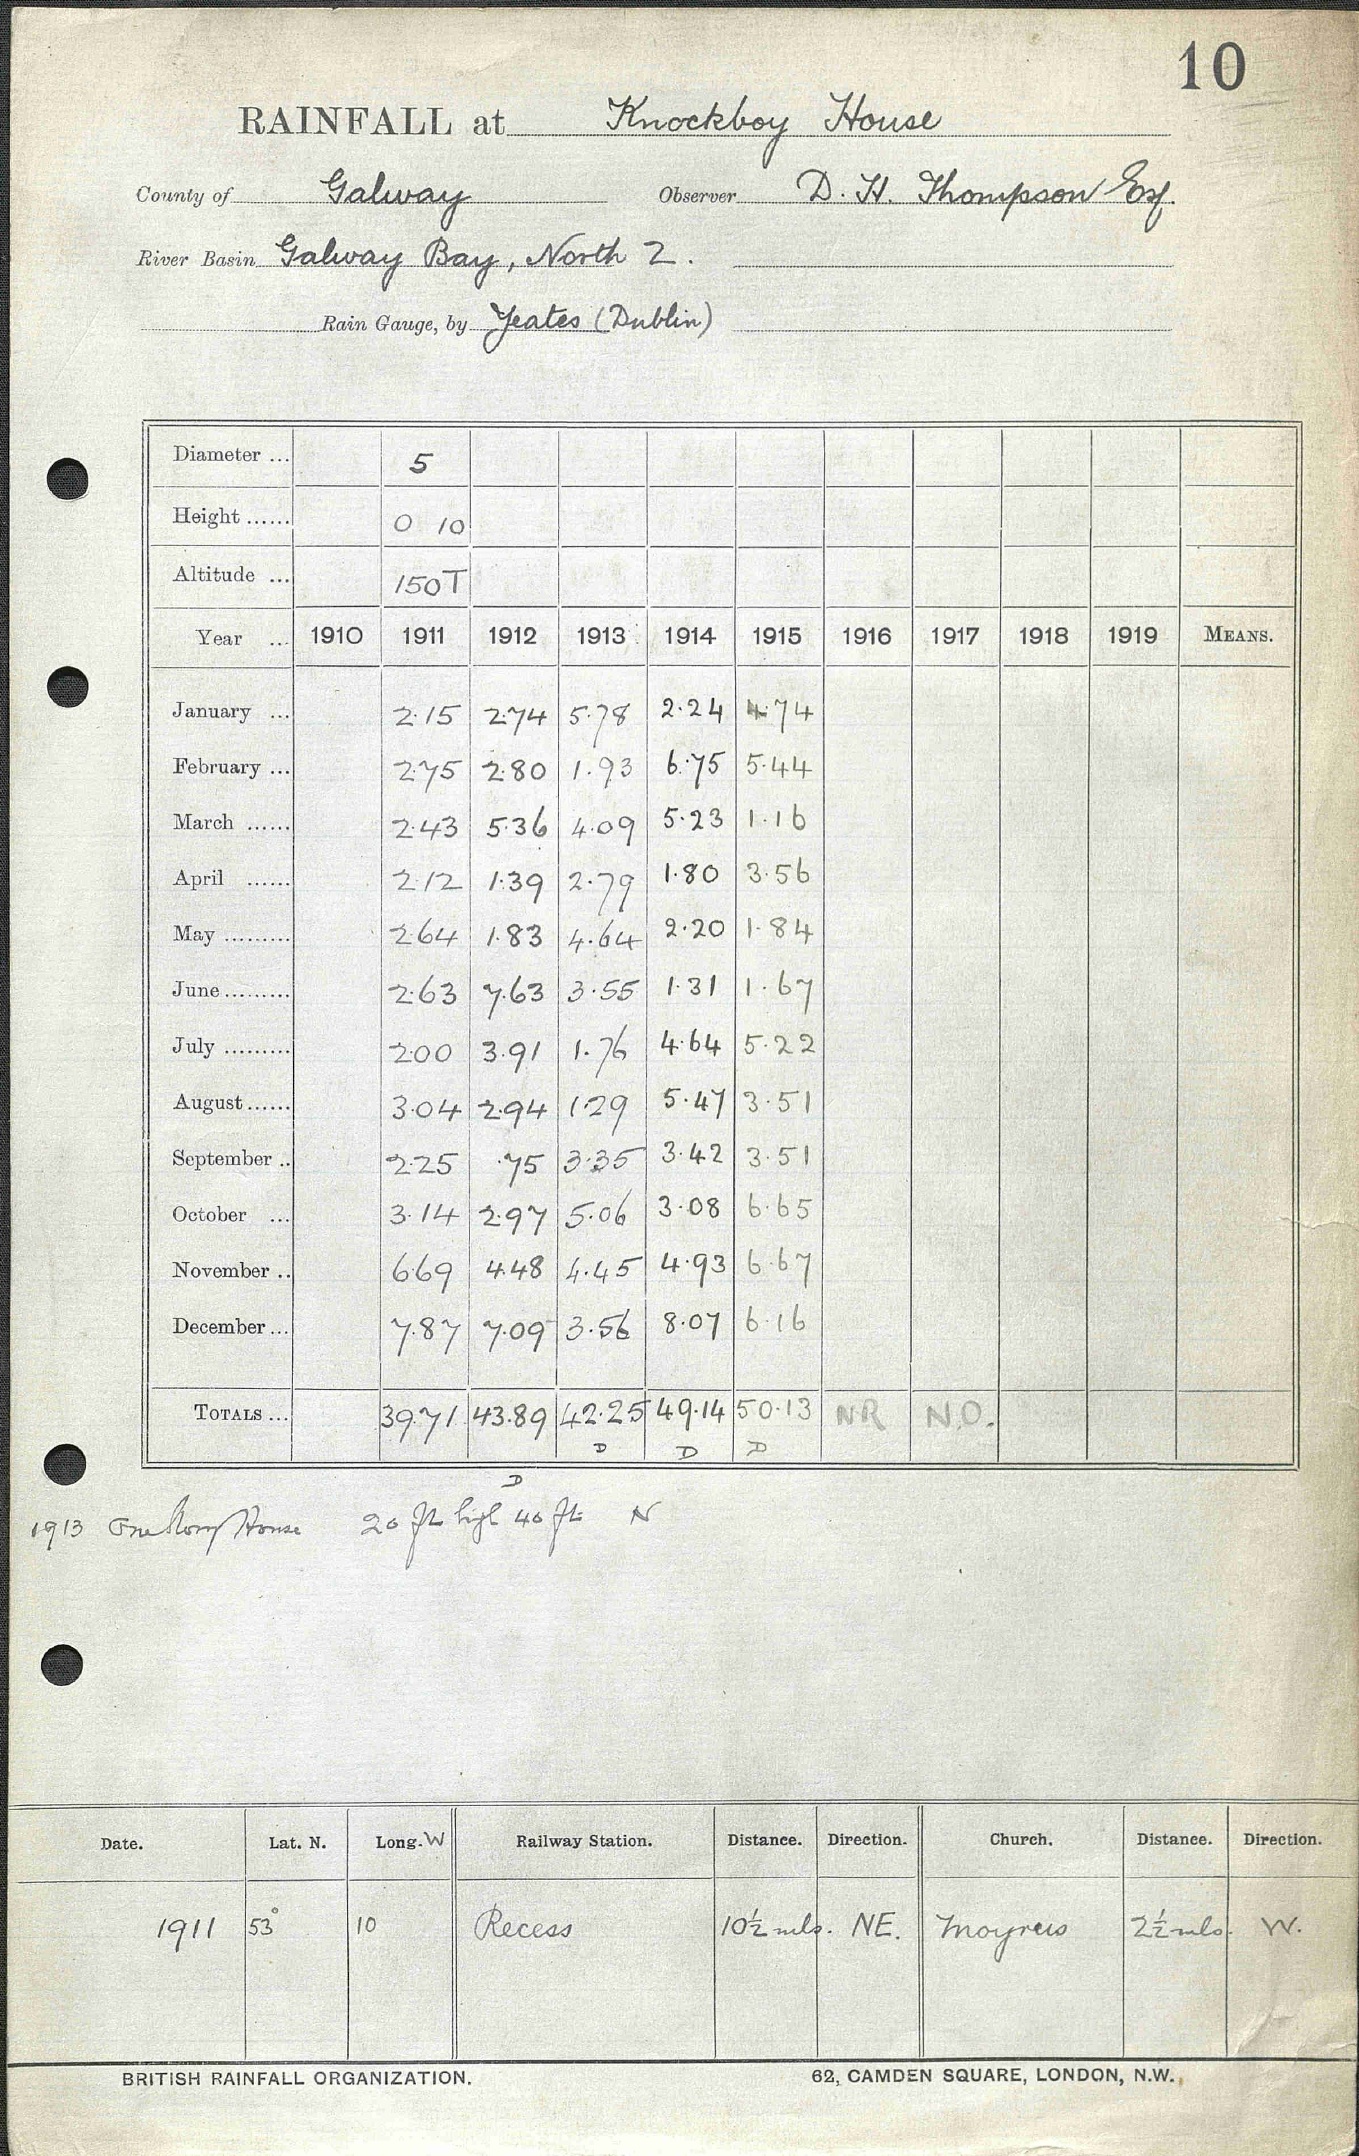 10
RAINFALL at Knockboy House
County of Galway Observer D. H. Thompson Esq.
River Basin Galway Bay, North 2.
Rain Gauge, by Yeates (Dublin)
Diameter ... 5
Height ...... 0 10
Altitude ... 150T
Year ... 1910 1911 1912 1913 1914 1915 1916 1917 1918 1919 MEANS.
January ... 2.15 2.74 5.78 2.24 4.74
February ... 2.75 2.80 1.93 6.75 5.44
March ...... 2.43 5.36 4.09 5.23 1.16
April ...... 2.12 1.39 2.79 1.80 3.56
May ......... 2.64 1.83 4.64 2.20 1.84
June ......... 2.63 7.63 3.55 1.31 1.67
July ......... 2.00 3.91 1.76 4.64 5.22
August ...... 3.04 2.94 1.29 5.47 3.51
September .. 2.25 .75 3.35 3.42 3.51
October ... 3.14 2.97 5.06 3.08 6.65
November .. 6.69 4.48 4.45 4.93 6.67
December ... 7.87 7.09 3.56 8.07 6.16
TOTALS ... 39.71 43.89 42.25 49.14 50.13 NR N.O.
D D D
D
1913 One Story House 20 ft high 40 ft N
Date. Lat. N. Long. W Railway Station. Distance. Direction. Church. Distance. Direction.
1911 53° 10 Recess 10½ mls. NE. Moyrus 2½ mls. W.
BRITISH RAINFALL ORGANIZATION. 62, CAMDEN SQUARE, LONDON, N.W.